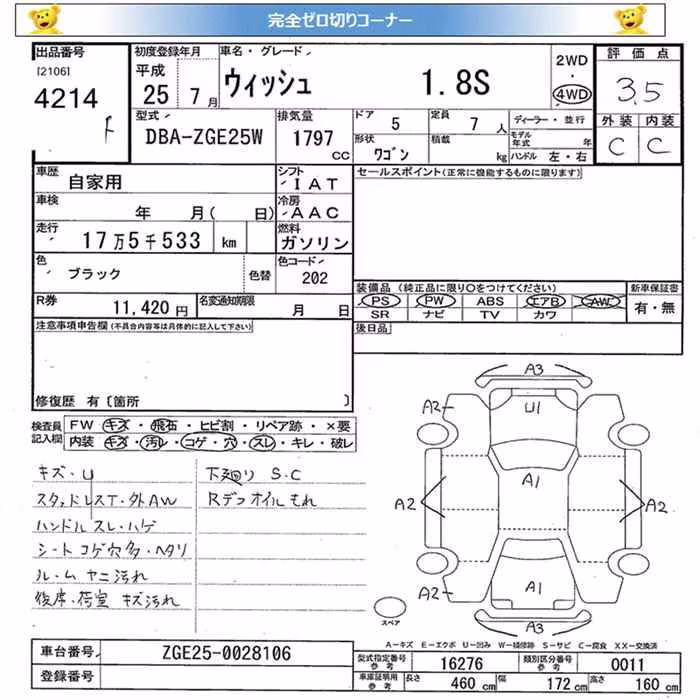 完全ゼロ切りコーナー
出品番号 初度登録年月 車名・グレード 2WD・4WD 評価点
[2106] 4214 F 平成 25 7月 ウィッシュ 1.8S 3.5
型式 DBA-ZGE25W 排気量 1797 CC ドア 5 定員 7人 ディーラー・並行 外装 内装
形状 ワゴン 積載 kg モデル年式 年 ハンドル 左・右 C C
車歴 自家用 シフト IAT セールスポイント(正常に機能するものに限ります)
車検 年 月( 日) 冷房 AAC
走行 17万5千533 km 燃料 ガソリン
色 ブラック 色替 色コード 202
装備品 (純正品に限り○をつけてください) 新車保証書
R券 11,420円 名変通知期限 月 日 PS PW ABS エアB AW 有・無
SR ナビ TV カワ
注意事項申告欄(不具合内容等は具体的に記入して下さい) 後日品
修復歴 有〔箇所 〕
検査員記入欄 FW キズ・飛石・ヒビ割・リペア跡・×要
内装 キズ・汚レ・コゲ・穴・スレ・キレ・破レ
キズ・U 下廻り S・C
スタッドレスT・外AW Rデフオイルもれ
ハンドルスレ・ハゲ
シートコゲ穴多・ヘタリ
ルームヤニ汚れ
後席・荷室キズ汚れ
A3
A2 U1
A1
A2 A2
A2 A1
A3
スペア
A-キズ E-エクボ U-凹み W-補修跡 S-サビ C-腐食 XX-交換済
車台番号 ZGE25-0028106
型式指定番号 参考 16276 類別区分番号 参考 0011
登録番号 車庫証明用 参考 長さ 460 cm 幅 172 cm 高さ 160 cm